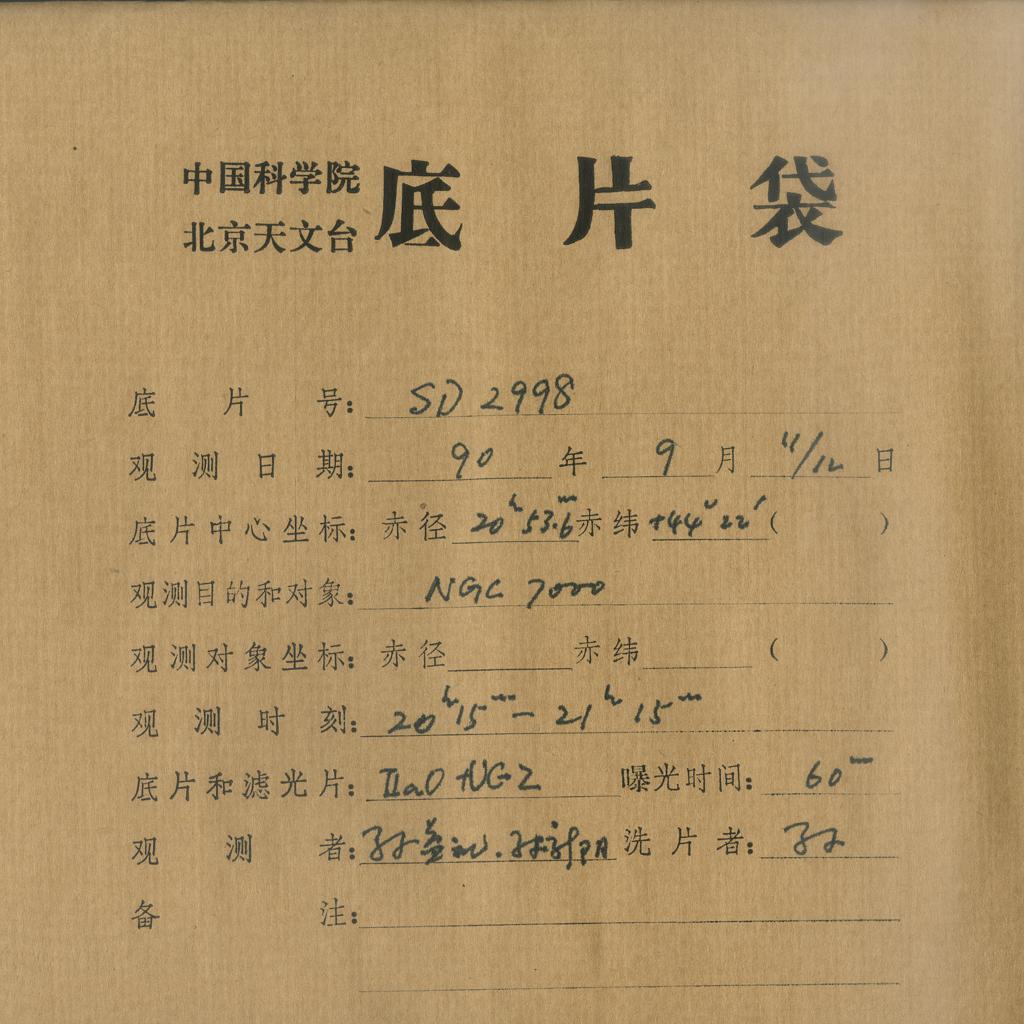 中国科学院
北京天文台
底片袋
底片号: SD 2998
观测日期: 90 年 9 月 11/12 日
底片中心坐标: 赤径 20ʰ53.6ᵐ 赤纬 +44°22′ ( )
观测目的和对象: NGC 7000
观测对象坐标: 赤径 赤纬 ( )
观测时刻: 20ʰ15ᵐ — 21ʰ15ᵐ
底片和滤光片: IIaO +UG2 曝光时间: 60ᵐ
观测者: 孙益礼. 洗片者: 孙
备注: